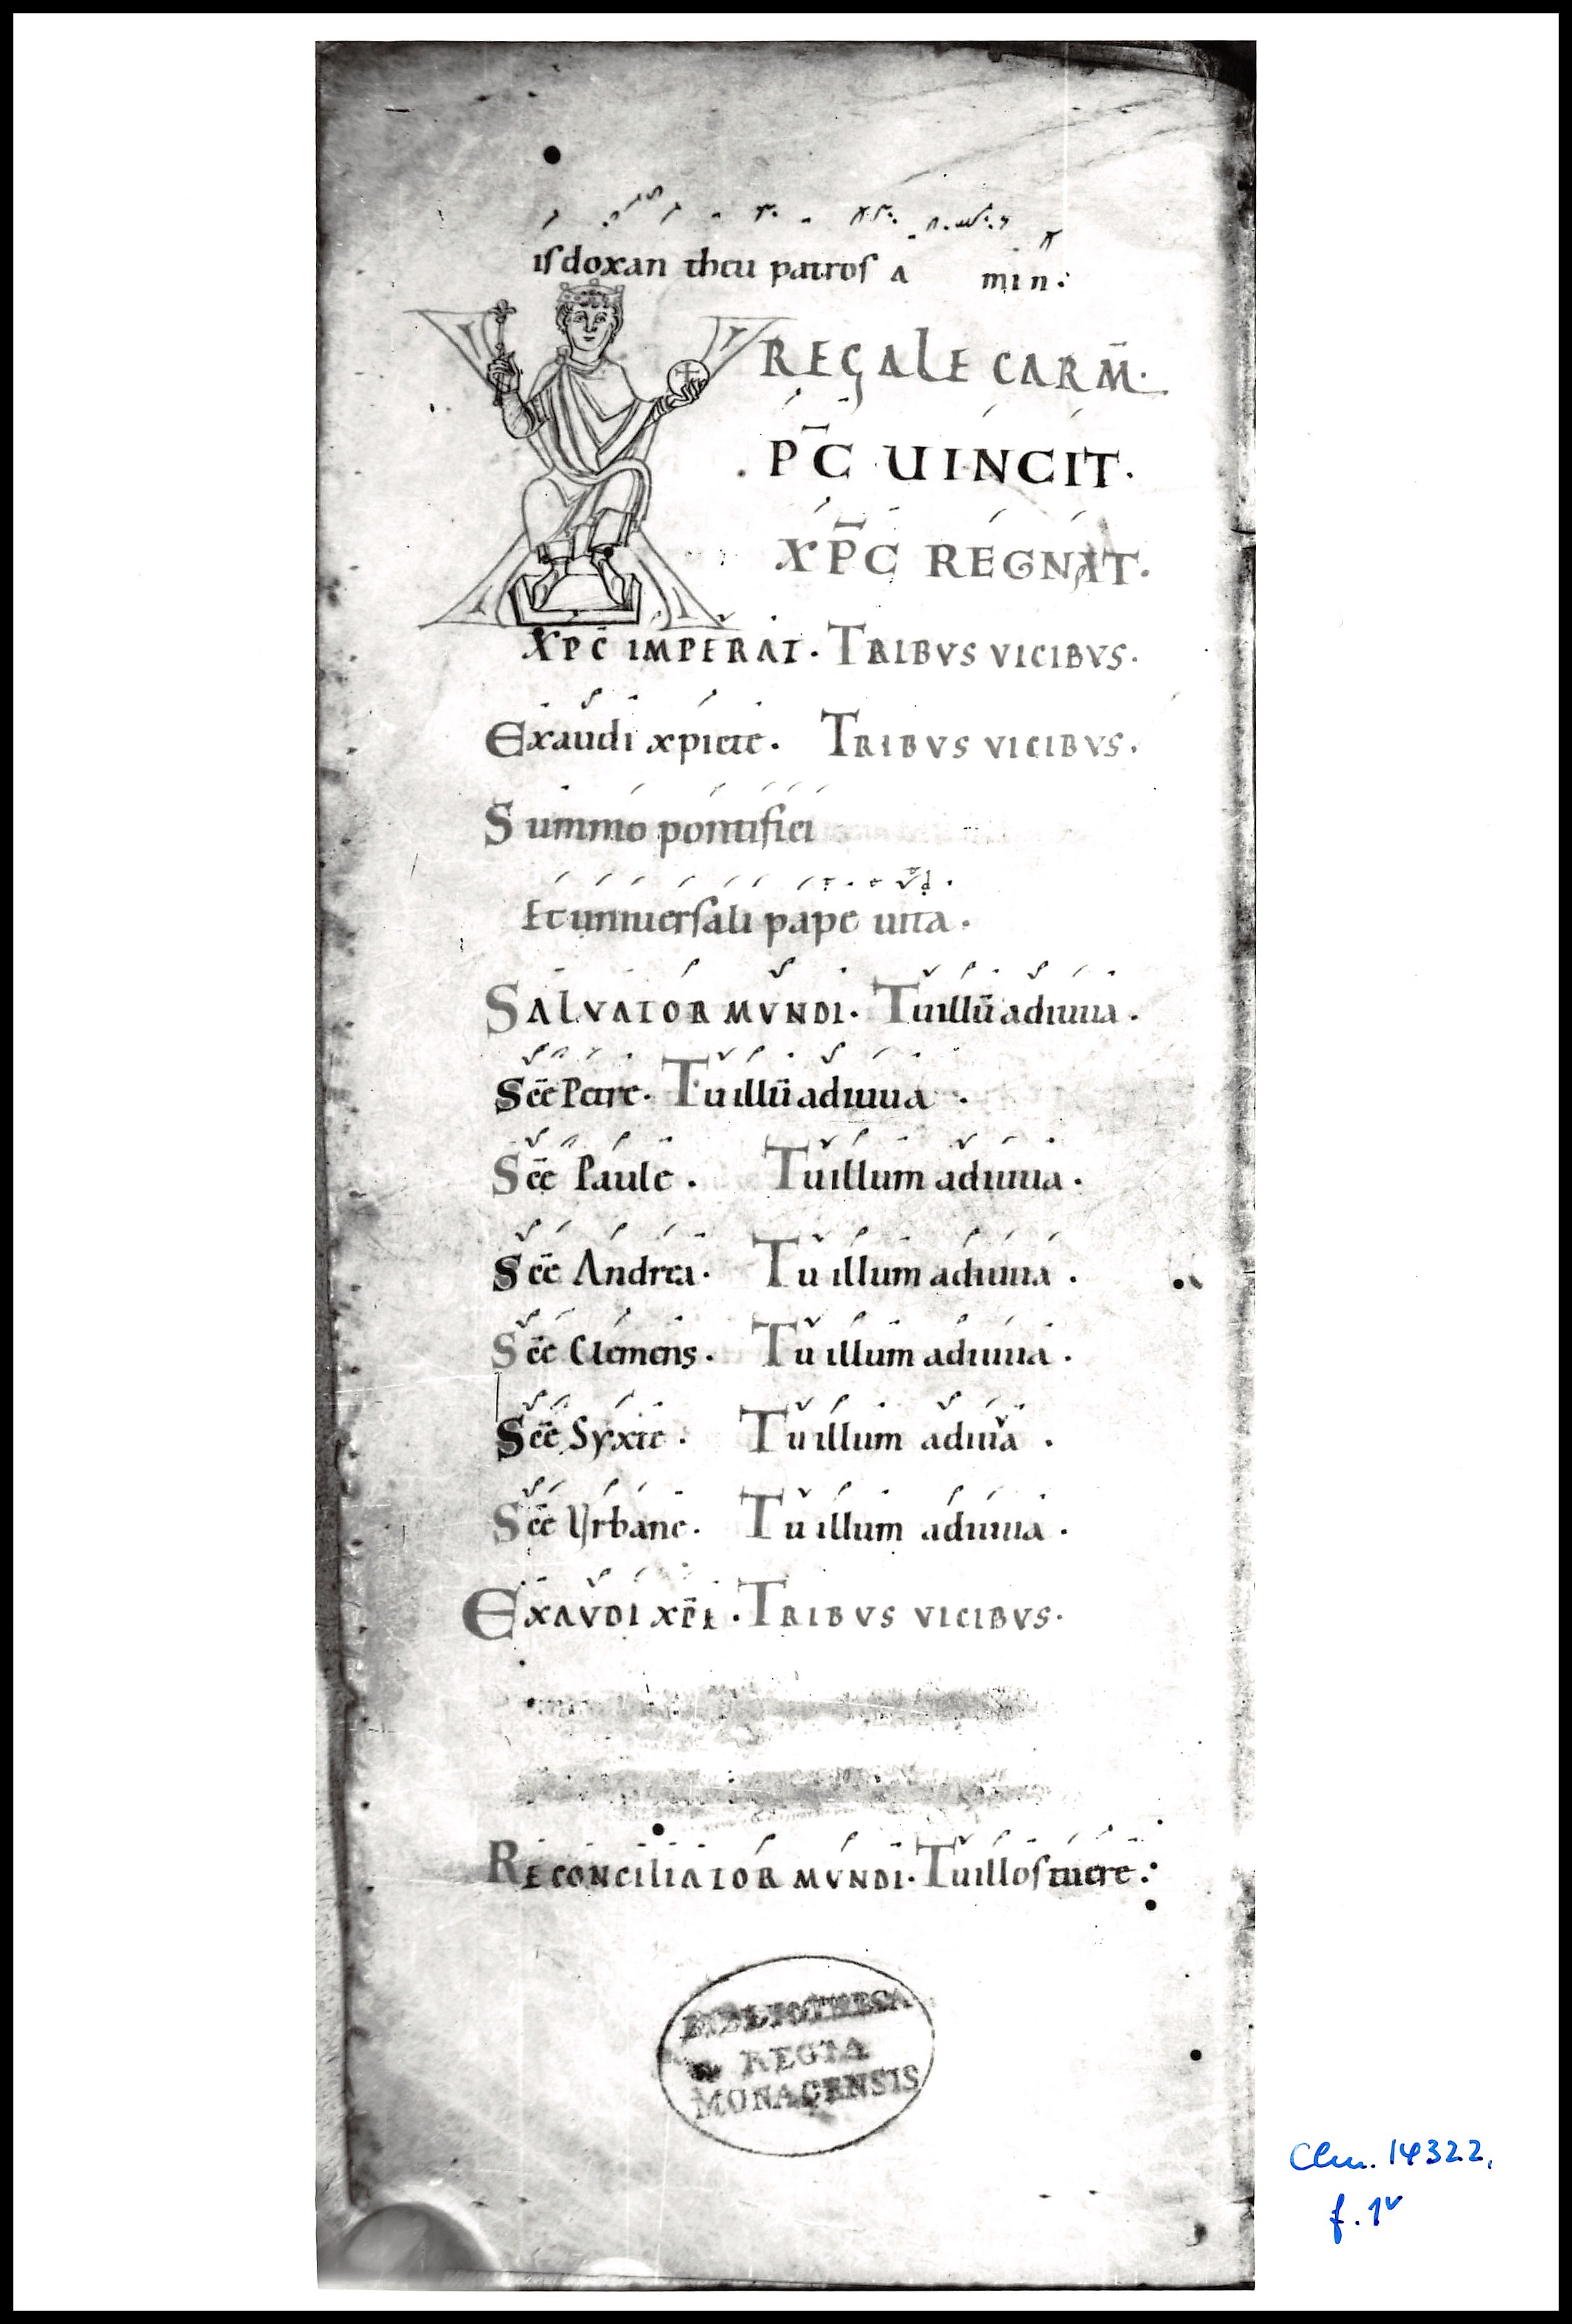 is doxan theu patros a min:
REGALE CARM̄.
X P̄C UINCIT.
XP̄C REGNAT.
XPC̄ IMPERAT. TRIBVS VICIBVS.
Exaudi xpicte. TRIBVS VICIBVS.
Summo pontifici
Et uniuersali pape uita.
SALVATOR MVNDI. Tu illū adiuua.
Sc̄e Petre. Tu illū adiuua.
Sc̄e Paule. Tu illum adiuua.
Sc̄e Andrea. Tu illum adiuua.
Sc̄e Clemens. Tu illum adiuua.
Sc̄e Syxte. Tu illum adiuua.
Sc̄e Vrbane. Tu illum adiuua.
EXAVDI XP̄E. TRIBVS VICIBVS.
RECONCILIATOR MVNDI. Tu illos tuere:
BIBLIOTHECA
REGIA
MONACENSIS
Clm. 14322,
f. 1v